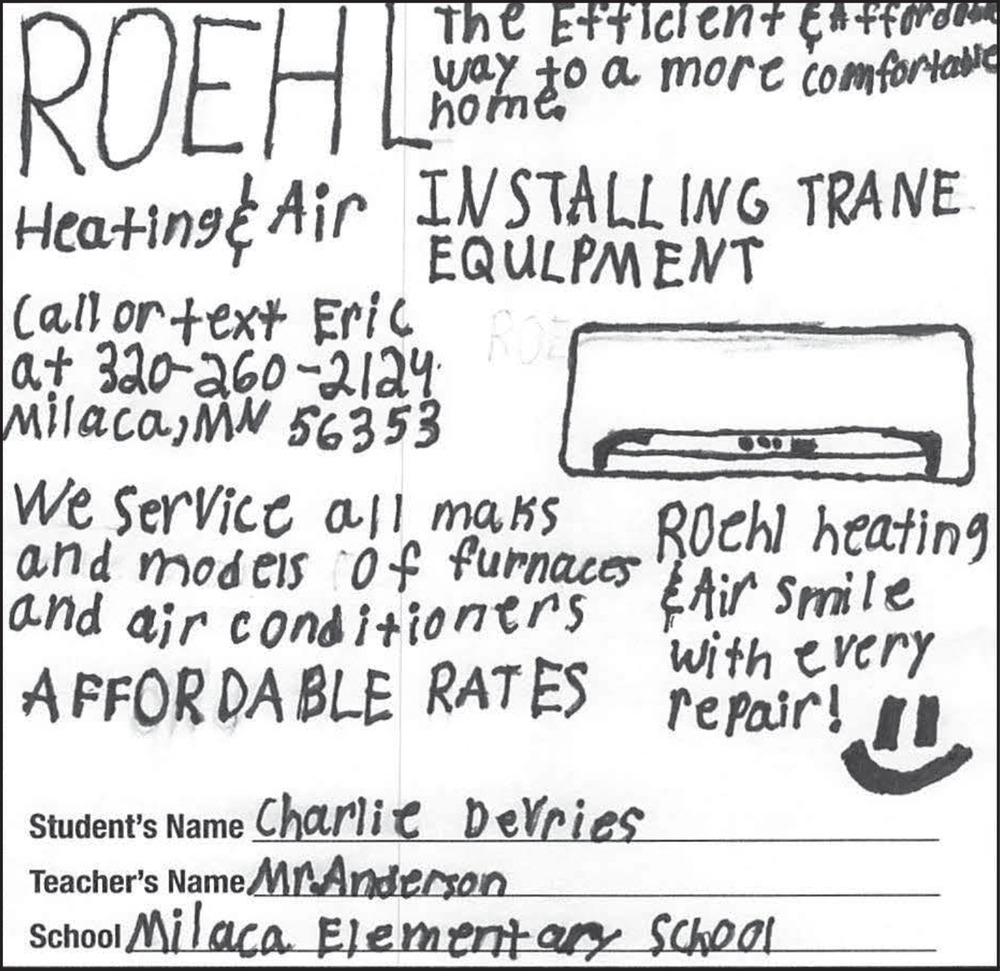 ROEHL
Heating & Air
The Efficient & Affordable
way to a more comfortable
home.
INSTALLING TRANE
EQULPMENT
Call or text Eric
at 320-260-2124
Milaca, MN 56353
ROE
We service all maks
and models of furnaces
and air conditioners
AFFORDABLE RATES
ROehl heating
& Air smile
with every
repair!
Student's Name Charlie DeVries
Teacher's Name Mr. Anderson
School Milaca Elementary School